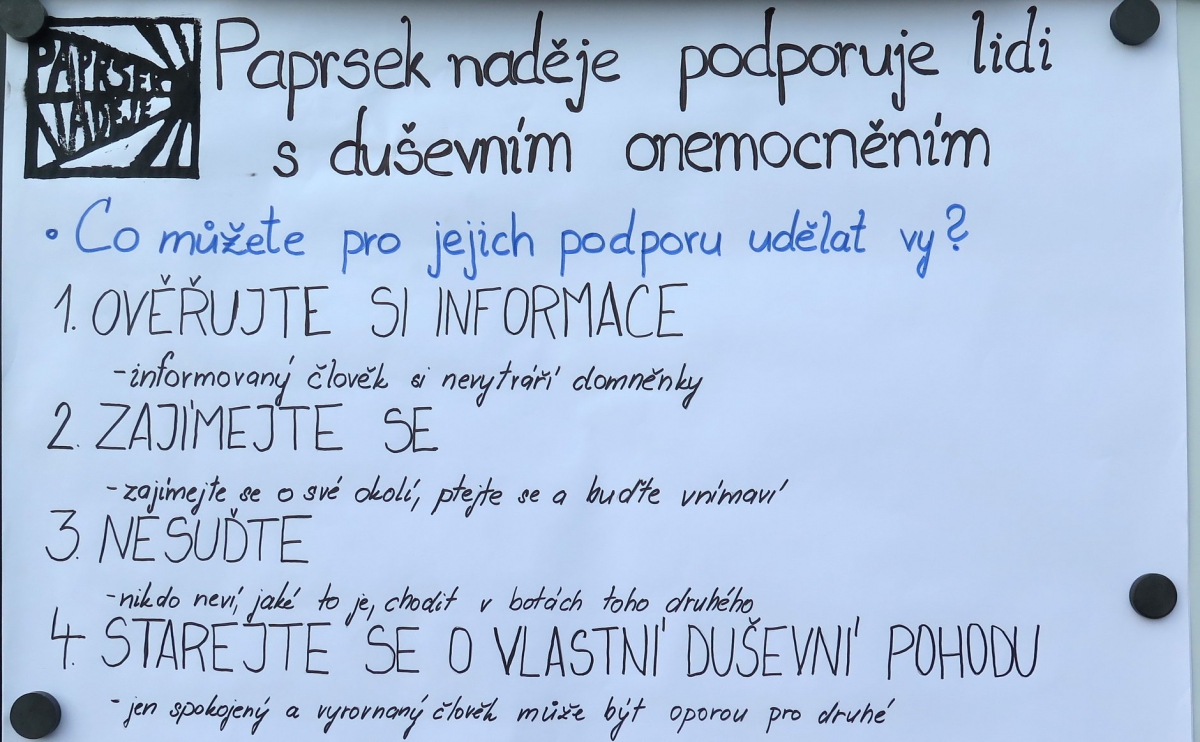 PAPRSEK
NADĚJE
Paprsek naděje podporuje lidi
s duševním onemocněním
• Co můžete pro jejich podporu udělat vy?
1. OVĚŘUJTE SI INFORMACE
- informovaný člověk si nevytváří domněnky
2. ZAJÍMEJTE SE
- zajímejte se o své okolí, ptejte se a buďte vnímaví
3. NESUĎTE
- nikdo neví, jaké to je, chodit v botách toho druhého
4. STAREJTE SE O VLASTNÍ DUŠEVNÍ POHODU
- jen spokojený a vyrovnaný člověk může být oporou pro druhé